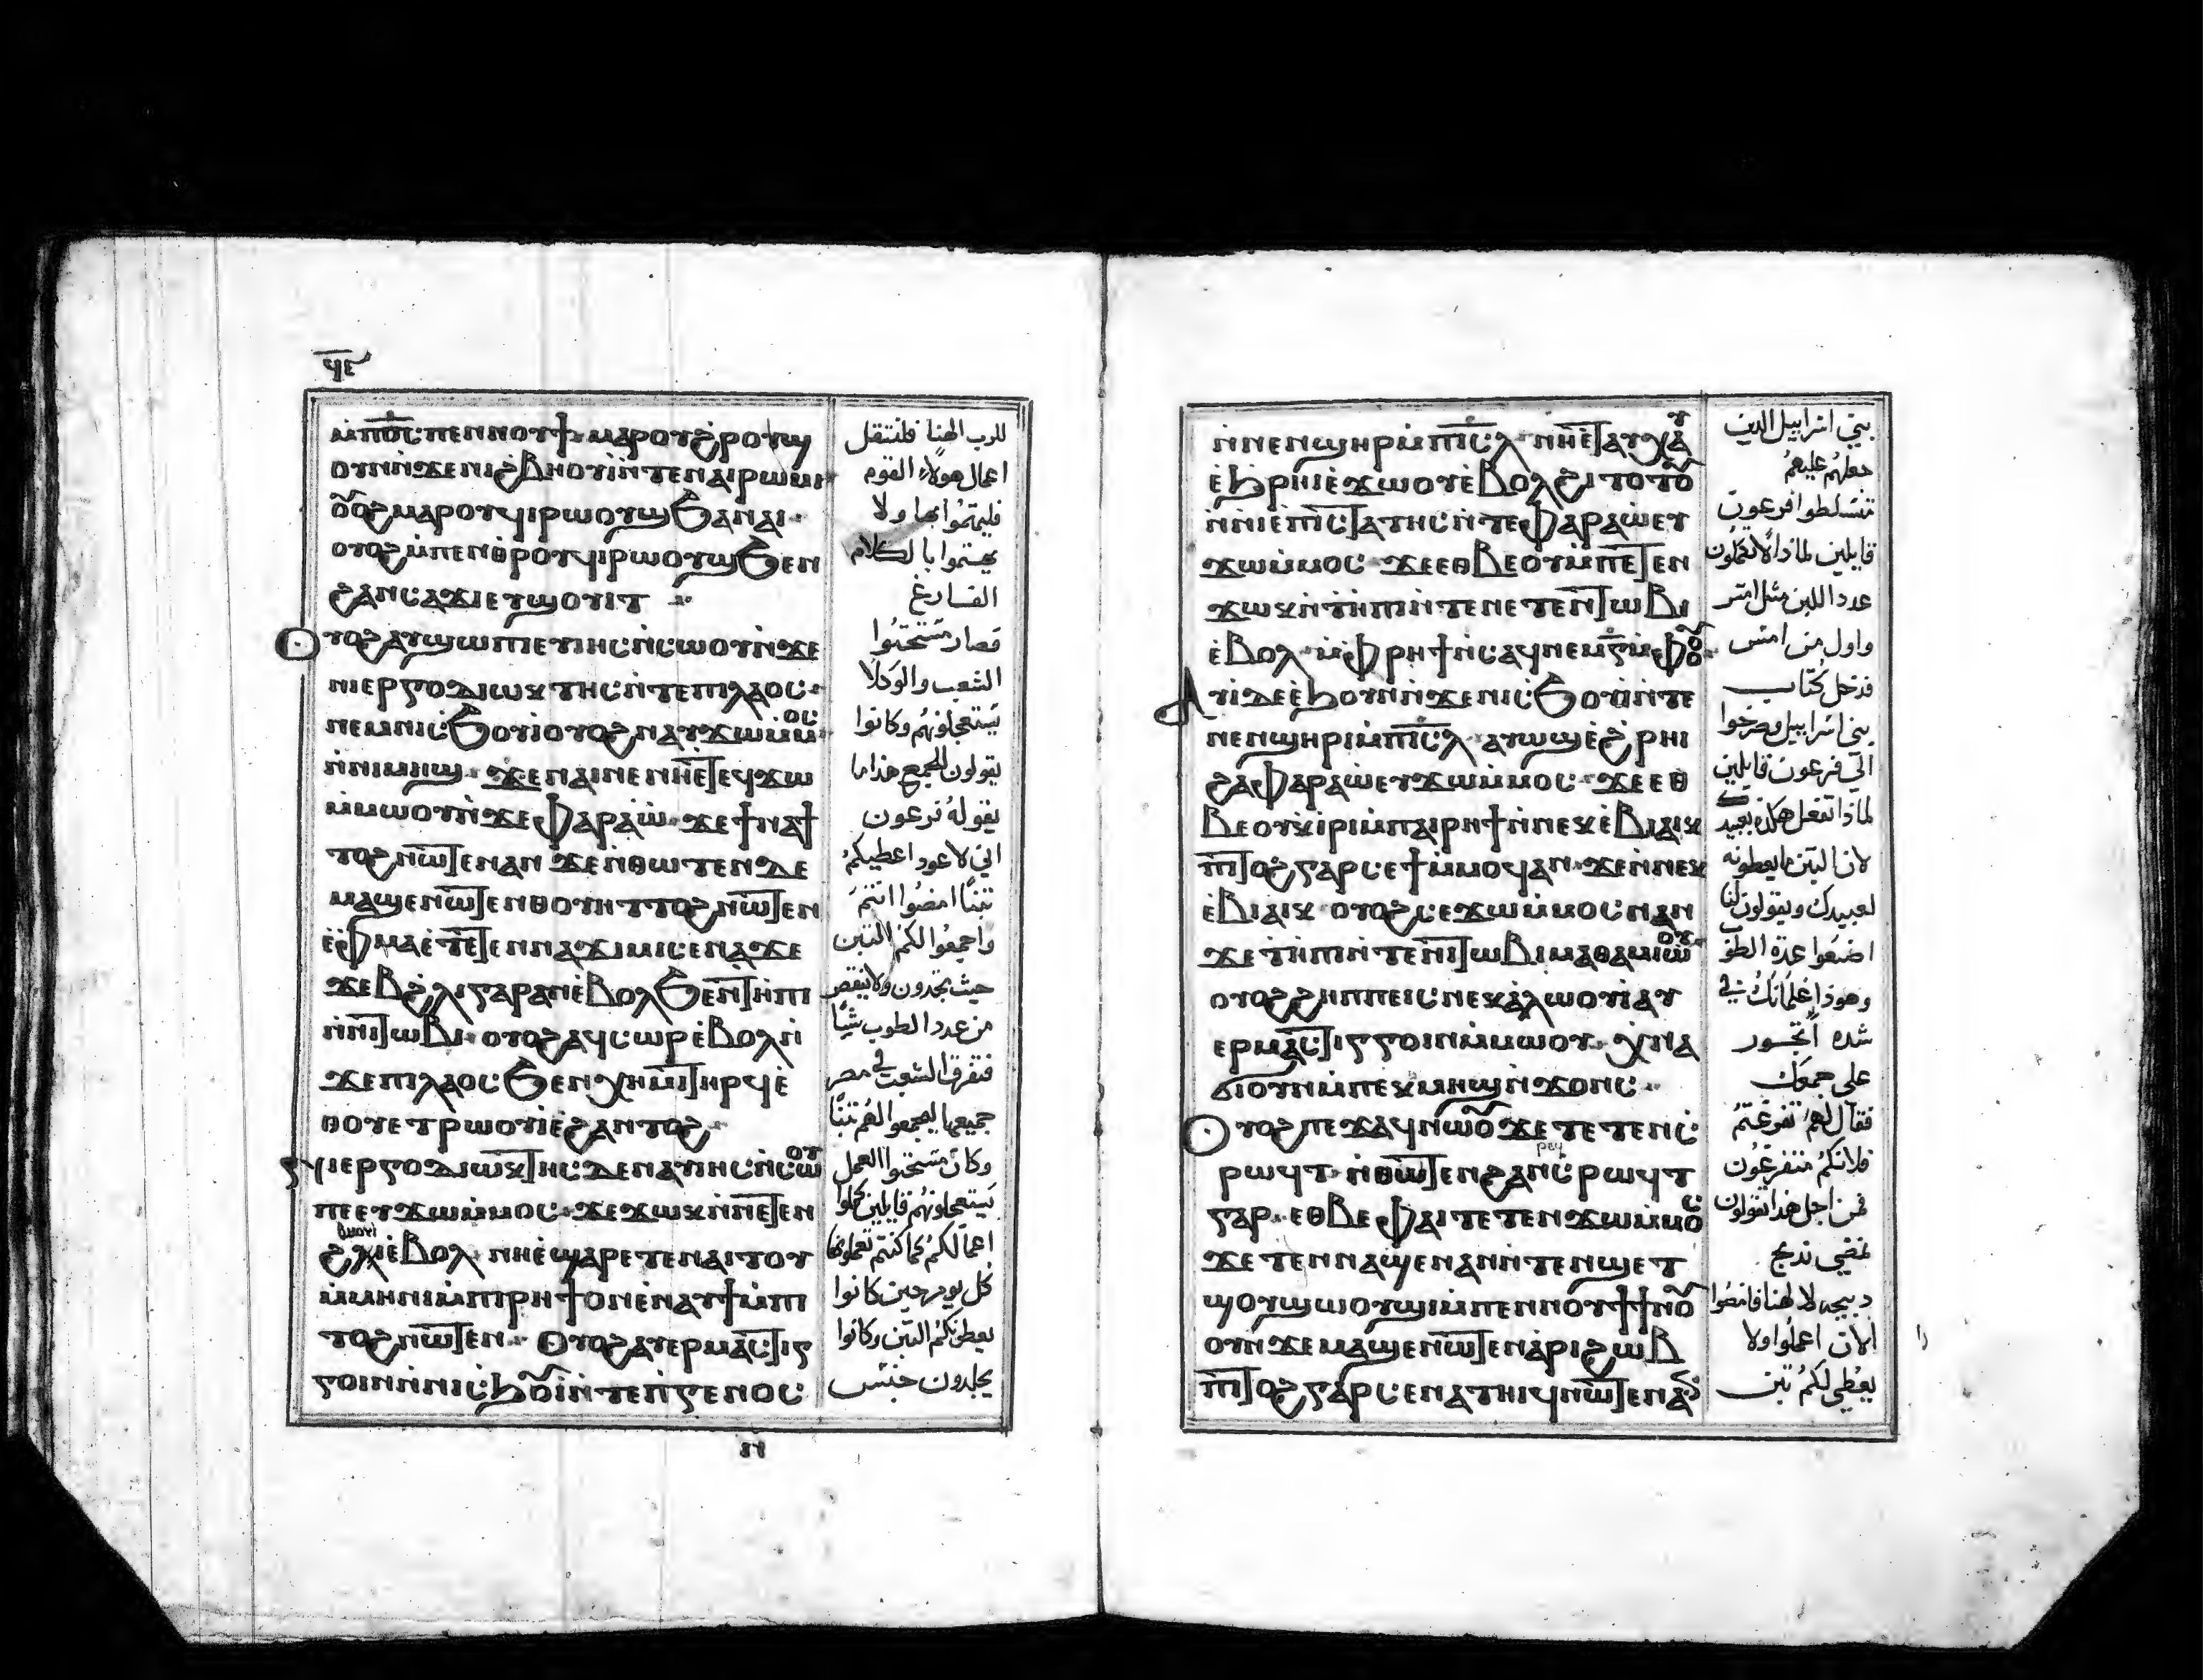 ϥⲉ
ⲙ̀ⲡⲟ̅ⲥ̅ ⲡⲉⲛⲛⲟⲩϯ · ⲙⲁⲣⲟⲩϩⲣⲟϣ
ⲟⲩⲛ ⲛ̀ϫⲉⲛⲓϩⲃⲏⲟⲩⲓ̀ ⲛ̀ⲧⲉⲛⲁⲓⲣⲱⲙⲓ
ⲟⲩⲟϩ ⲙⲁⲣⲟⲩϥⲓⲣⲱⲟⲩϣ ϧⲁⲛⲁⲓ ·
ⲟⲩⲟϩ ⲙ̀ⲡⲉⲛⲑⲣⲟⲩϥⲓⲣⲱⲟⲩϣ ϧⲉⲛ
ϩⲁⲛⲥⲁϫⲓ ⲉⲩϣⲟⲩⲓⲧ
ⲟⲩⲟϩ ⲁⲩϣⲱⲡⲉ ⲩⲓⲏⲥ ⲛ̀ⲥⲱⲟⲩ ⲛ̀ϫⲉ
ⲛⲓⲉⲣⲅⲟⲇⲓⲱⲕⲧⲏⲥ ⲛ̀ⲧⲉⲡⲓⲗⲁⲟⲥ ·
ⲛⲉⲙⲛⲓⲥ̀ϧⲟⲩⲓ̀ ⲟⲩⲟϩ ⲛⲁⲩϫⲱ ⲙ̀ⲙⲟⲥ
ⲛ̀ⲛⲓⲙⲏϣ · ϫⲉⲛⲁⲓⲛⲉ ⲛⲏⲉ̀ⲧⲉϥϫⲱ
ⲙ̀ⲙⲱⲟⲩ ⲛ̀ϫⲉⲫⲁⲣⲁⲱ̀ · ϫⲉϯⲛⲁϯ
ⲧⲟϩ ⲛⲱⲧⲉⲛ ⲁⲛ ϫⲉ ⲛⲑⲱⲧⲉⲛ ⲇⲉ
ⲙⲁϣⲉⲛⲱⲧⲉⲛ ⲑⲟⲩⲏⲧ ⲧⲟϩ ⲛⲱⲧⲉⲛ
ⲉ̀ⲫⲙⲁ ⲉ̀ⲧⲉⲧⲉⲛⲛⲁϫⲓⲙⲓ ⲥⲉⲛⲁϫⲉ
ϫⲉⲃϩⲗⲓ ⲅⲁⲣ ⲁⲛ ⲉ̀ⲃⲟⲗ ϧⲉⲛⲧⲏⲡⲓ
ⲛ̀ⲛⲓⲧⲱⲃⲓ · ⲟⲩⲟϩ ⲁϥⲥⲱⲣ ⲉ̀ⲃⲟⲗ ⲛ̀
ϫⲉⲡⲓⲗⲁⲟⲥ ϧⲉⲛ ⲭⲏⲙⲓ ⲧⲏⲣϥ ⲉ̀
ⲑⲟⲩⲉⲧ ⲣⲱⲟⲩⲓ̀ ⲉ̀ϩⲁⲛⲧⲟϩ ·
ⲛⲓⲉⲣⲅⲟⲇⲓⲱⲕⲧⲏⲥ ⲇⲉ ⲛⲁⲩⲓⲏⲥ ⲛ̀ⲥⲱⲟⲩ
ⲡⲉ ⲉⲩϫⲱ ⲙ̀ⲙⲟⲥ · ϫⲉ ϫⲱⲕ ⲛ̀ⲛⲉⲧⲉⲛ
ϩⲃⲏⲟⲩⲓ ⲉ̀ⲃⲟⲗ · ⲛⲏⲉ̀ϣⲁⲣⲉⲧⲉⲛⲁⲓⲧⲟⲩ
ⲙ̀ⲙⲏⲛⲓ ⲙ̀ⲡⲓⲣⲏϯ ⲟⲛ ⲉ̀ⲛⲁⲩϯ ⲙ̀ⲡⲓ
ⲧⲟϩ ⲛⲱⲧⲉⲛ · ⲟⲩⲟϩ ⲁⲩⲉⲣⲙⲁⲥⲧⲓⲅ
ⲅⲟⲓⲛ ⲛ̀ⲛⲓⲥ̀ϧⲟⲩⲓ̀ ⲛ̀ⲧⲉⲡ̀ⲅⲉⲛⲟⲥ
للرب الهنا فلتتقل
اعمال هولاء القوم
فليهتموا بها ولا
يهتموا بالكلام
الفارغ
فصار مستحثوا
الشعب والوكلا
يستعجلونهم وكانوا
يقولون للجمع هذا ما
يقوله فرعون
اني لا عود اعطيكم
تبنا امضوا انتم
واجمعوا لكم التبن
حيث تجدون ولا ينقص
من عدد الطوب شيا
فتفرق الشعب في مصر
جميعها ليجمعوا لهم تبنا
وكان مستحثوا العمل
يستعجلونهم قايلين كملوا
اعمالكم كما كنتم تعملونها
كل يوم حين كانوا
يعطونكم التبن وكانوا
يجلدون جنس
ⲛ̀ⲛⲉⲛϣⲏⲣⲓ ⲙ̀ⲡⲓⲥ̅ⲗ̅ · ⲛⲏⲉ̀ⲧⲁⲩⲭⲁⲩ
ⲉ̀ϩⲣⲏⲓ ⲉ̀ϫⲱⲟⲩ ⲉ̀ⲃⲟⲗϩⲓⲧⲟⲧⲟⲩ
ⲛ̀ⲛⲓⲉ̀ⲡⲓⲥⲧⲁⲧⲏⲥ ⲛ̀ⲧⲉⲫⲁⲣⲁⲱ̀ ⲉⲩ
ϫⲱ ⲙ̀ⲙⲟⲥ · ϫⲉ ⲉⲑⲃⲉⲟⲩ ⲙ̀ⲡⲉⲧⲉⲛ
ϫⲱⲕ ⲛ̀ⲧⲏⲡⲓ ⲛ̀ⲧⲉⲛⲉⲧⲉⲛⲧⲱⲃⲓ
ⲉ̀ⲃⲟⲗ · ⲙ̀ⲫⲣⲏϯ ⲛ̀ⲥⲁϥ ⲛⲉⲙ ⲅ̅ ⲙ̀ⲫⲟⲟⲩ
ⲁⲩⲓ̀ ⲇⲉ ⲉ̀ϧⲟⲩⲛ ⲛ̀ϫⲉⲛⲓⲥ̀ϧⲟⲩⲓ̀ ⲛ̀ⲧⲉ
ⲛⲉⲛϣⲏⲣⲓ ⲙ̀ⲡⲓⲥ̅ⲗ̅ · ⲁⲩⲱϣ ⲉ̀ϩⲣⲏⲓ
ϩⲁⲫⲁⲣⲁⲱ̀ ⲉⲩϫⲱ ⲙ̀ⲙⲟⲥ · ϫⲉ ⲉⲑ
ⲃⲉⲟⲩ ⲕⲓ̀ⲣⲓ ⲙ̀ⲡⲁⲓⲣⲏϯ ⲛ̀ⲛⲉⲕⲉ̀ⲃⲓⲁⲓⲕ
ⲡⲓⲧⲟϩ ⲅⲁⲣ ⲥⲉϯ ⲙ̀ⲙⲟϥ ⲁⲛ · ϫⲉ ⲛ̀ⲛⲉⲕ
ⲉ̀ⲃⲓⲁⲓⲕ · ⲟⲩⲟϩ ⲥⲉϫⲱ ⲙ̀ⲙⲟⲥ ⲛⲁⲛ
ϫⲉ ⲧ̀ⲏⲡⲓ ⲛ̀ⲧⲉⲛⲓⲧⲱⲃⲓ ⲙⲁⲑⲁⲙⲓⲱⲟⲩ
ⲟⲩⲟϩ ϩⲏⲡⲡⲉ ⲓⲥ ⲛⲉⲕⲁ̀ⲗⲱⲟⲩⲓ̀ ⲁⲩ
ⲉⲣⲙⲁⲥⲧⲓⲅⲅⲟⲓⲛ ⲙ̀ⲙⲱⲟⲩ · ⲭⲛⲁ
ϭⲓ ⲟⲩⲛ ⲙ̀ⲡⲉⲕⲙⲏϣ ⲛ̀ϫⲟⲛⲥ ·
ⲟⲩⲟϩ ⲡⲉϫⲁϥ ⲛⲱⲟⲩ ϫⲉ ⲧⲉⲧⲉⲛⲥ̀
ⲣⲱϥⲧ · ⲛ̀ⲑⲱⲧⲉⲛ ϩⲁⲛⲥ̀ⲣⲱϥⲧ
ⲅⲁⲣ · ⲉⲑⲃⲉⲫⲁⲓ ⲧⲉⲧⲉⲛϫⲱ ⲙ̀ⲙⲟⲥ
ϫⲉ ⲧⲉⲛⲛⲁϣⲉⲛⲁⲛ ⲛ̀ⲧⲉⲛϣⲉⲧ
ϣⲟⲩϣⲱⲟⲩϣⲓ ⲙ̀ⲡⲉⲛⲛⲟⲩϯ ϯⲛⲟⲩ
ⲟⲩⲛ ϫⲉ ⲙⲁϣⲉⲛⲱⲧⲉⲛ ⲁⲣⲓϩⲱⲃ
ⲡⲓⲧⲟϩ ⲅⲁⲣ ⲥⲉⲛⲁⲧⲏⲓϥ ⲛⲱⲧⲉⲛ ⲁⲛ
بني اسراييل الذين
جعلهم عليهم
متسلطوا فرعون
قايلين لماذا لا تكملون
عدد اللبن مثل امس
واول من امس
فدخل كتاب
بني اسراييل وصرخوا
الى فرعون قايلين
لماذا تفعل هكذا بعبيدك
لان التبن ما يعطونه
لعبيدك ويقولون لنا
اصنعوا عدة الطوب
وهوذا غلمانك في
شده اتجور
على جمعك
فقال لهم تفرغتم
فلانكم متفرغون
فمن اجل هذا تقولون
نمضي نذبح
ذبيحه لالهنا فامضوا
الان اعملوا ولا
يعطى لكم تبن